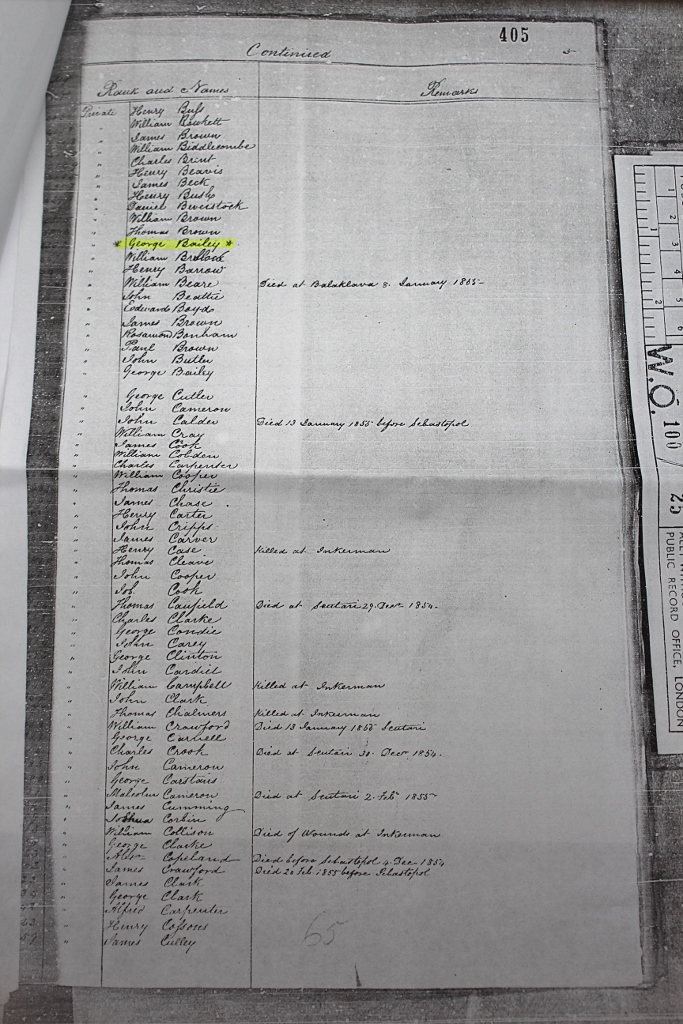 405
Continued
Rank and Names Remarks
Private Henry Buss
" William Bowkett
" James Brown
" William Biddlecombe
" Charles Brint
" Henry Beavis
" James Beck
" Henry Bush
" Daniel Beverstock
" William Brown
" Thomas Brown
" * George Bailey *
" William
" Henry Barrow
" William Beare Died at Balaklava 8. January 1855-
" John Beattie
" Edward Boyds
" James Brown
" Rosamond Bonham
" Paul Brown
" John Butler
" George Bailey
" George Cutler
" John Cameron
" John Calder Died 13 January 1855 before Sebastopol
" William Cray
" James Cook
" William Cobden
" Charles Carpenter
" William Cooper
" Thomas Christie
" James Chase
" Henry Carter
" John Cripps
" James Carver
" Henry Case Killed at Inkerman
" Thomas Cleave
" John Cooper
" Job Cook
" Thomas Caufield Died at Scutari 29 Decr 1854-
" Charles Clarke
" George Condie
" John Carey
" George Clinton
" John Cardiel
" William Campbell Killed at Inkerman
" John Clark
" Thomas Chalmers Killed at Inkerman
" William Crawford Died 13 January 1855 Scutari
" George Carnell
" Charles Crook Died at Scutari 30. Decr 1854-
" John Cameron
" George Carstairs
" Malcolm Cameron Died at Scutari 2. Feby 1855-
" James Cumming
" Joshua Corbin
" William Collison Died of Wounds at Inkerman
" George Clarke
" Alexr Copeland Died before Sebastopol 4 Dec 1854
" James Crawford Died 20 Feb 1855 before Sebastopol
" James Clark
" George Clark
" Alfred Carpenter
" Henry Cossons
" James Culley
65
1
2
4
5
6
2
W.O. 100 / 25
PUBLIC RECORD OFFICE, LONDON